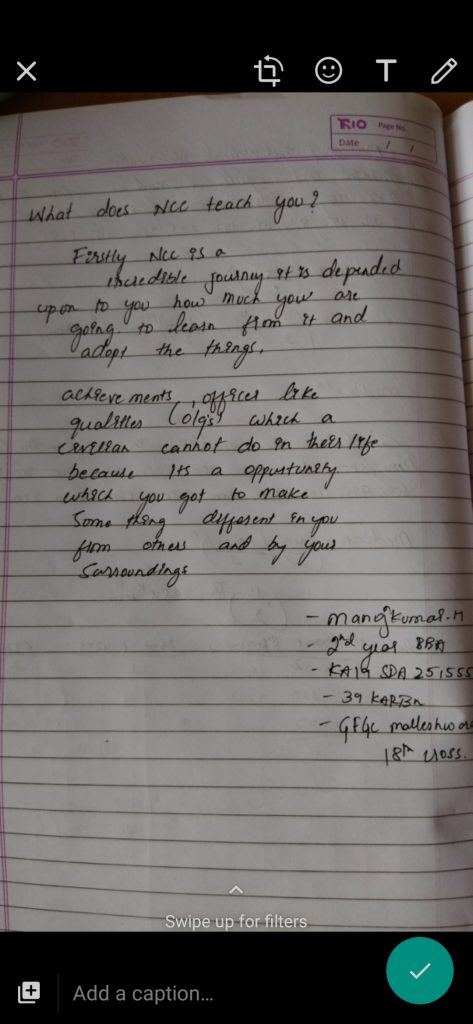 T
TRIO Page No.
Date / /
What does NCC teach you?
Firstly NCC is a
incredible journey. it is depended
upon to you how much you are
going to learn from it and
adopt the things.
achieve ments, officer like
qualities (olq's) which a
civilian cannot do in their life
because its a oppurtunity
which you got to make
Some thing different in you
from others and by your
Surroundings
- 2nd year BBA
- KA19 SDA 251555
- 39 KARBn
- GFGC malleshwara
18th cross.
Swipe up for filters
Add a caption...